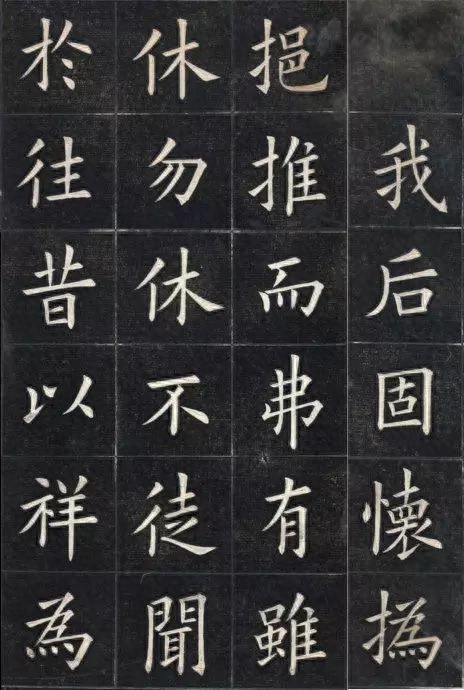 我后固懷撝
挹推而弗有雖
休勿休不徒聞
於往昔以祥為